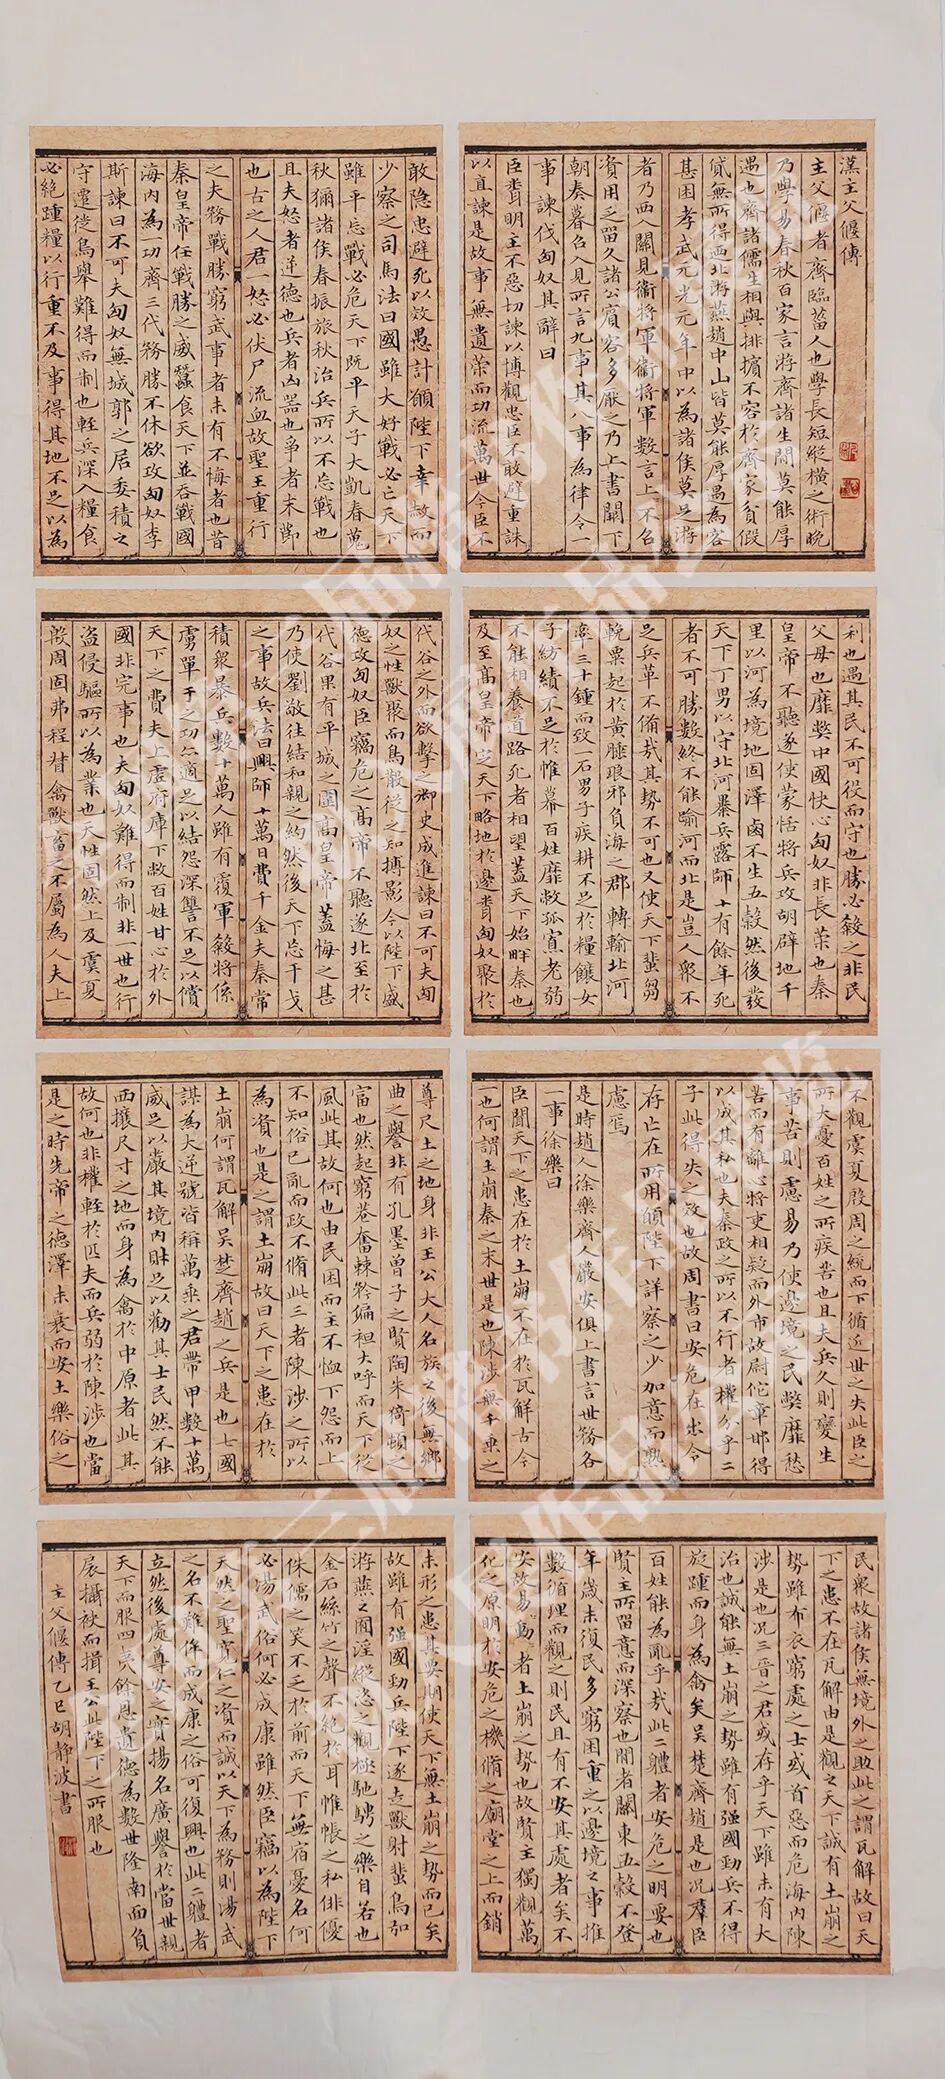 漢主父偃傳
主父偃者齊臨菑人也學長短縱橫之術晚
乃學易春秋百家言游齊諸生間莫能厚
遇也齊諸儒生相與排擯不容於齊家貧假
貸無所得西北游燕趙中山皆莫能厚爲客
甚困孝武元光元年中以為諸侯莫足游
者乃西入關見衞將軍衞將軍數言上不召
資用乏留久諸公賓客多厭之乃上書闕下
朝奏暮召入見所言九事其八事為律令一
事諫伐匈奴其辭曰
臣聞明主不惡切諫以博觀忠臣不敢避重誅
以直諫是故事無遺策而功流萬世今臣不
敢隐忠避死以效愚計願陛下幸赦而
少察之司馬法曰國雖大好戰必亡天下
雖平忘戰必危天下既平天子大凱春蒐
秋獮諸侯春振旅秋治兵所以不忘戰也
且夫怒者逆德也兵者凶器也爭者末節
也古之人君一怒必伏尸流血故聖王重行
之夫務戰勝窮武事者未有不悔者也昔
秦皇帝任戰勝之威蠶食天下並吞戰國
海內為一功齊三代務勝不休欲攻匈奴李
斯諫曰不可夫匈奴無城郭之居委積之
守遷徙鳥舉難得而制也輕兵深入糧食
必絶踵糧以行重不及事得其地不足以為
利也遇其民不可役而守也勝必殺之非民
父母也靡獘中國快心匈奴非長策也秦
皇帝不聽遂使蒙恬將兵攻胡辟地千
里以河為境地固澤鹵不生五穀然後發
天下丁男以守北河暴兵露師十有餘年死
者不可勝數終不能踰河而北是豈人衆不
足兵革不備哉其勢不可也又使天下蜚芻
輓粟起於黄腄琅邪負海之郡轉輸北河
率三十鍾而致一石男子疾耕不足於糧饟女
子紡績不足於帷幕百姓靡敝孤寡老弱
不能相養道路死者相望蓋天下始畔秦也
及至高皇帝定天下略地於邊聞匈奴聚於
代谷之外而欲擊之御史成進諫曰不可夫匈
奴之性獸聚而鳥散從之如搏影今以陛下盛
德攻匈奴臣竊危之高帝不聽遂北至於
代谷果有平城之圍高皇帝蓋悔之甚
乃使劉敬往結和親之約然後天下忘干戈
之事故兵法曰興師十萬日費千金夫秦常
積衆暴兵數十萬人雖有覆軍殺將係
虜單于之功亦適足以結怨深讐不足以償
天下之費夫上虛府庫下敝百姓甘心於外
國非完事也夫匈奴難得而制非一世也行
盗侵驅所以為業也天性固然上及虞夏
殷周固弗程督禽獸畜之不屬為人夫上
不觀虞夏殷周之統而下循近世之失此臣之
所大憂百姓之所疾苦也且夫兵久則變生
事苦則慮易乃使邊境之民獘靡愁
苦而有離心將吏相疑而外市故尉佗章邯得
以成其私也夫秦政之所以不行者權分乎二
子此得失之效也故周書曰安危在出令
存亡在所用願陛下詳察之少加意而熟
慮焉
是時趙人徐樂齊人嚴安俱上書言世務各
一事徐樂曰
臣聞天下之患在於土崩不在於瓦解古今
一也何謂土崩秦之末世是也陳涉無千乘之
尊尺土之地身非王公大人名族之後無鄉
曲之譽非有孔墨曾子之賢陶朱猗頓之
富也然起窮巷奮棘矜偏袒大呼而天下從
風此其故何也由民困而主不恤下怨而上
不知俗已亂而政不脩此三者陳涉之所以
為資也是之謂土崩故曰天下之患在於
土崩何謂瓦解吳楚齊趙之兵是也七國
謀為大逆號皆稱萬乘之君帶甲數十萬
威足以嚴其境內財足以勸其士民然不能
西攘尺寸之地而身為禽於中原者此其
故何也非權輕於匹夫而兵弱於陳涉也當
是之時先帝之德澤未衰而安土樂俗之
民衆故諸侯無境外之助此之謂瓦解故曰天
下之患不在瓦解由是觀之天下誠有土崩之
勢雖布衣窮處之士或首惡而危海內陳
涉是也况三晉之君或存乎天下雖未有大
治也誠能無土崩之勢雖有强國勁兵不得
旋踵而身為禽矣吳楚齊趙是也况羣臣
百姓能為亂乎哉此二體者安危之明要也
賢主所留意而深察也間者關東五穀不登
年歲未復民多窮困重之以邊境之事推
數循理而觀之則民且有不安其處者矣不
安故易動易動者土崩之勢也故賢主獨觀萬
化之原明於安危之機脩之廟堂之上而銷
未形之患其要期使天下無土崩之勢而已矣
故雖有强國勁兵陛下逐走獸射蜚鳥弘
游燕之囿淫縱恣之觀極馳騁之樂自若也
金石絲竹之聲不絕於耳帷帳之私俳優
侏儒之笑不乏於前而天下無宿憂名何
必湯武俗何必成康雖然臣竊以為陛下
天然之聖寬仁之資而誠以天下為務則湯武
之名不難侔而成康之俗可復興也此二體者
立然後處尊安之實揚名廣譽於當世親
天下而服四夷餘恩遺德為數世隆南面負
扆攝袂而揖王公此陛下之所服也
主父偃傳乙巳胡静波書